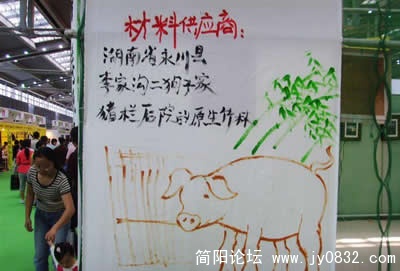 材料供应商:
湖南省永川县
李家沟二狗子家
猪栏后院的原生竹林
简阳论坛 www.jy0832.com